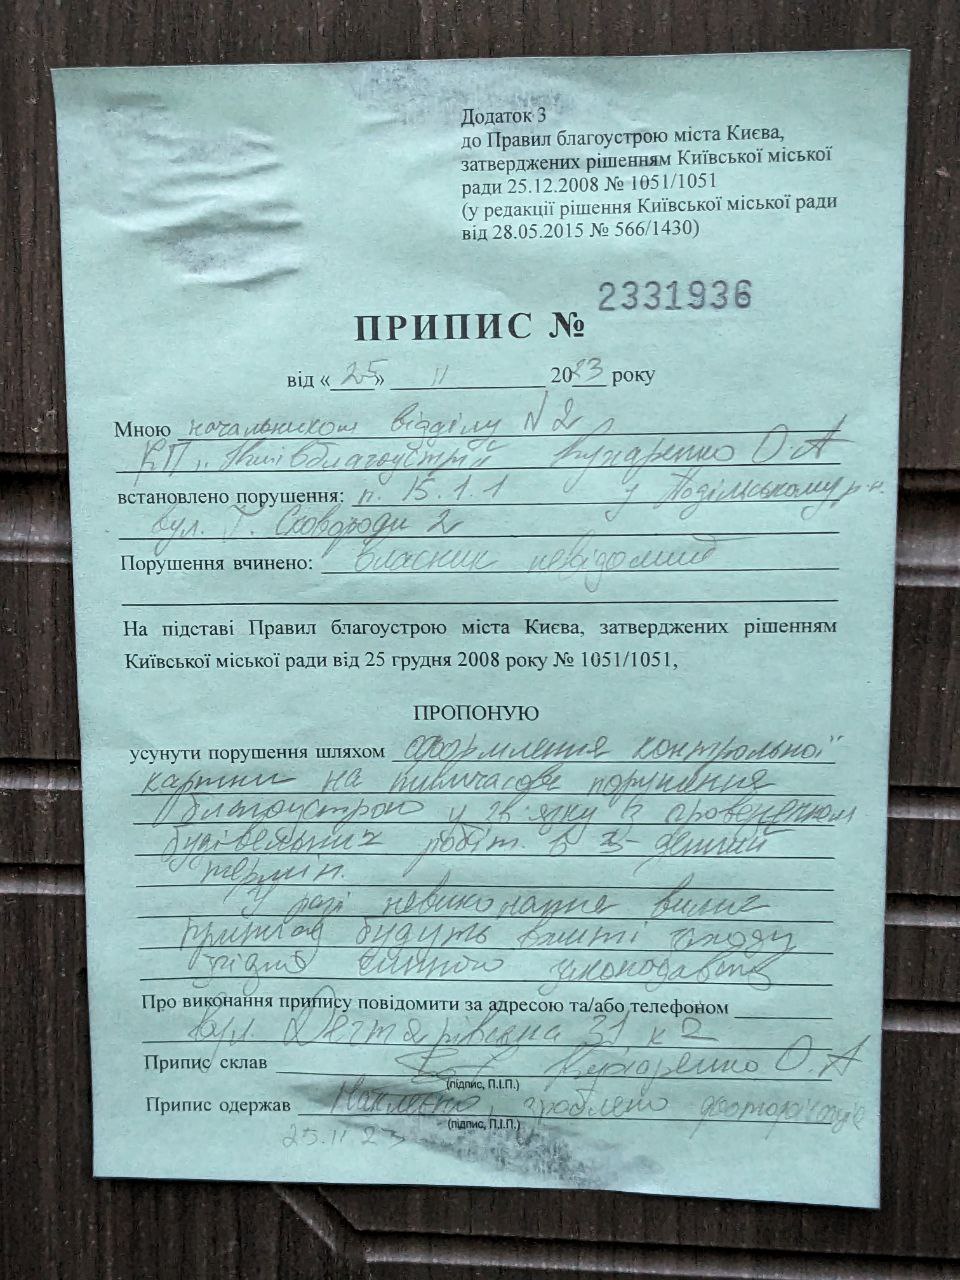 Додаток 3
до Правил благоустрою міста Києва,
затверджених рішенням Київської міської
ради 25.12.2008 № 1051/1051
(у редакції рішення Київської міської ради
від 28.05.2015 № 566/1430)
ПРИПИС № 2331936
від «25» 11 2023 року
Мною начальником відділу N 2
КП "Київблагоустрій О.А
встановлено порушення: п. 15.1.1 у Подільському р-н.
вул. Г. Сковороди 2
Порушення вчинено: власник невідомий
На підставі Правил благоустрою міста Києва, затверджених рішенням
Київської міської ради від 25 грудня 2008 року № 1051/1051,
ПРОПОНУЮ
усунути порушення шляхом оформлення контрольної
картки на тимчасове порушення
благоустрою у зв'язку з проведенням
будівельних робіт. в 3-денний
термін.
У разі невиконання вимог
припису будуть вжиті заходи
згідно чинного законодавства
Про виконання припису повідомити за адресою та/або телефоном
вул. Дегтярівська 31 к 2
Припис склав О.А
(підпис, П.І.П.)
Припис одержав Наклеєно, зроблено
(підпис, П.І.П.)
25.11 23